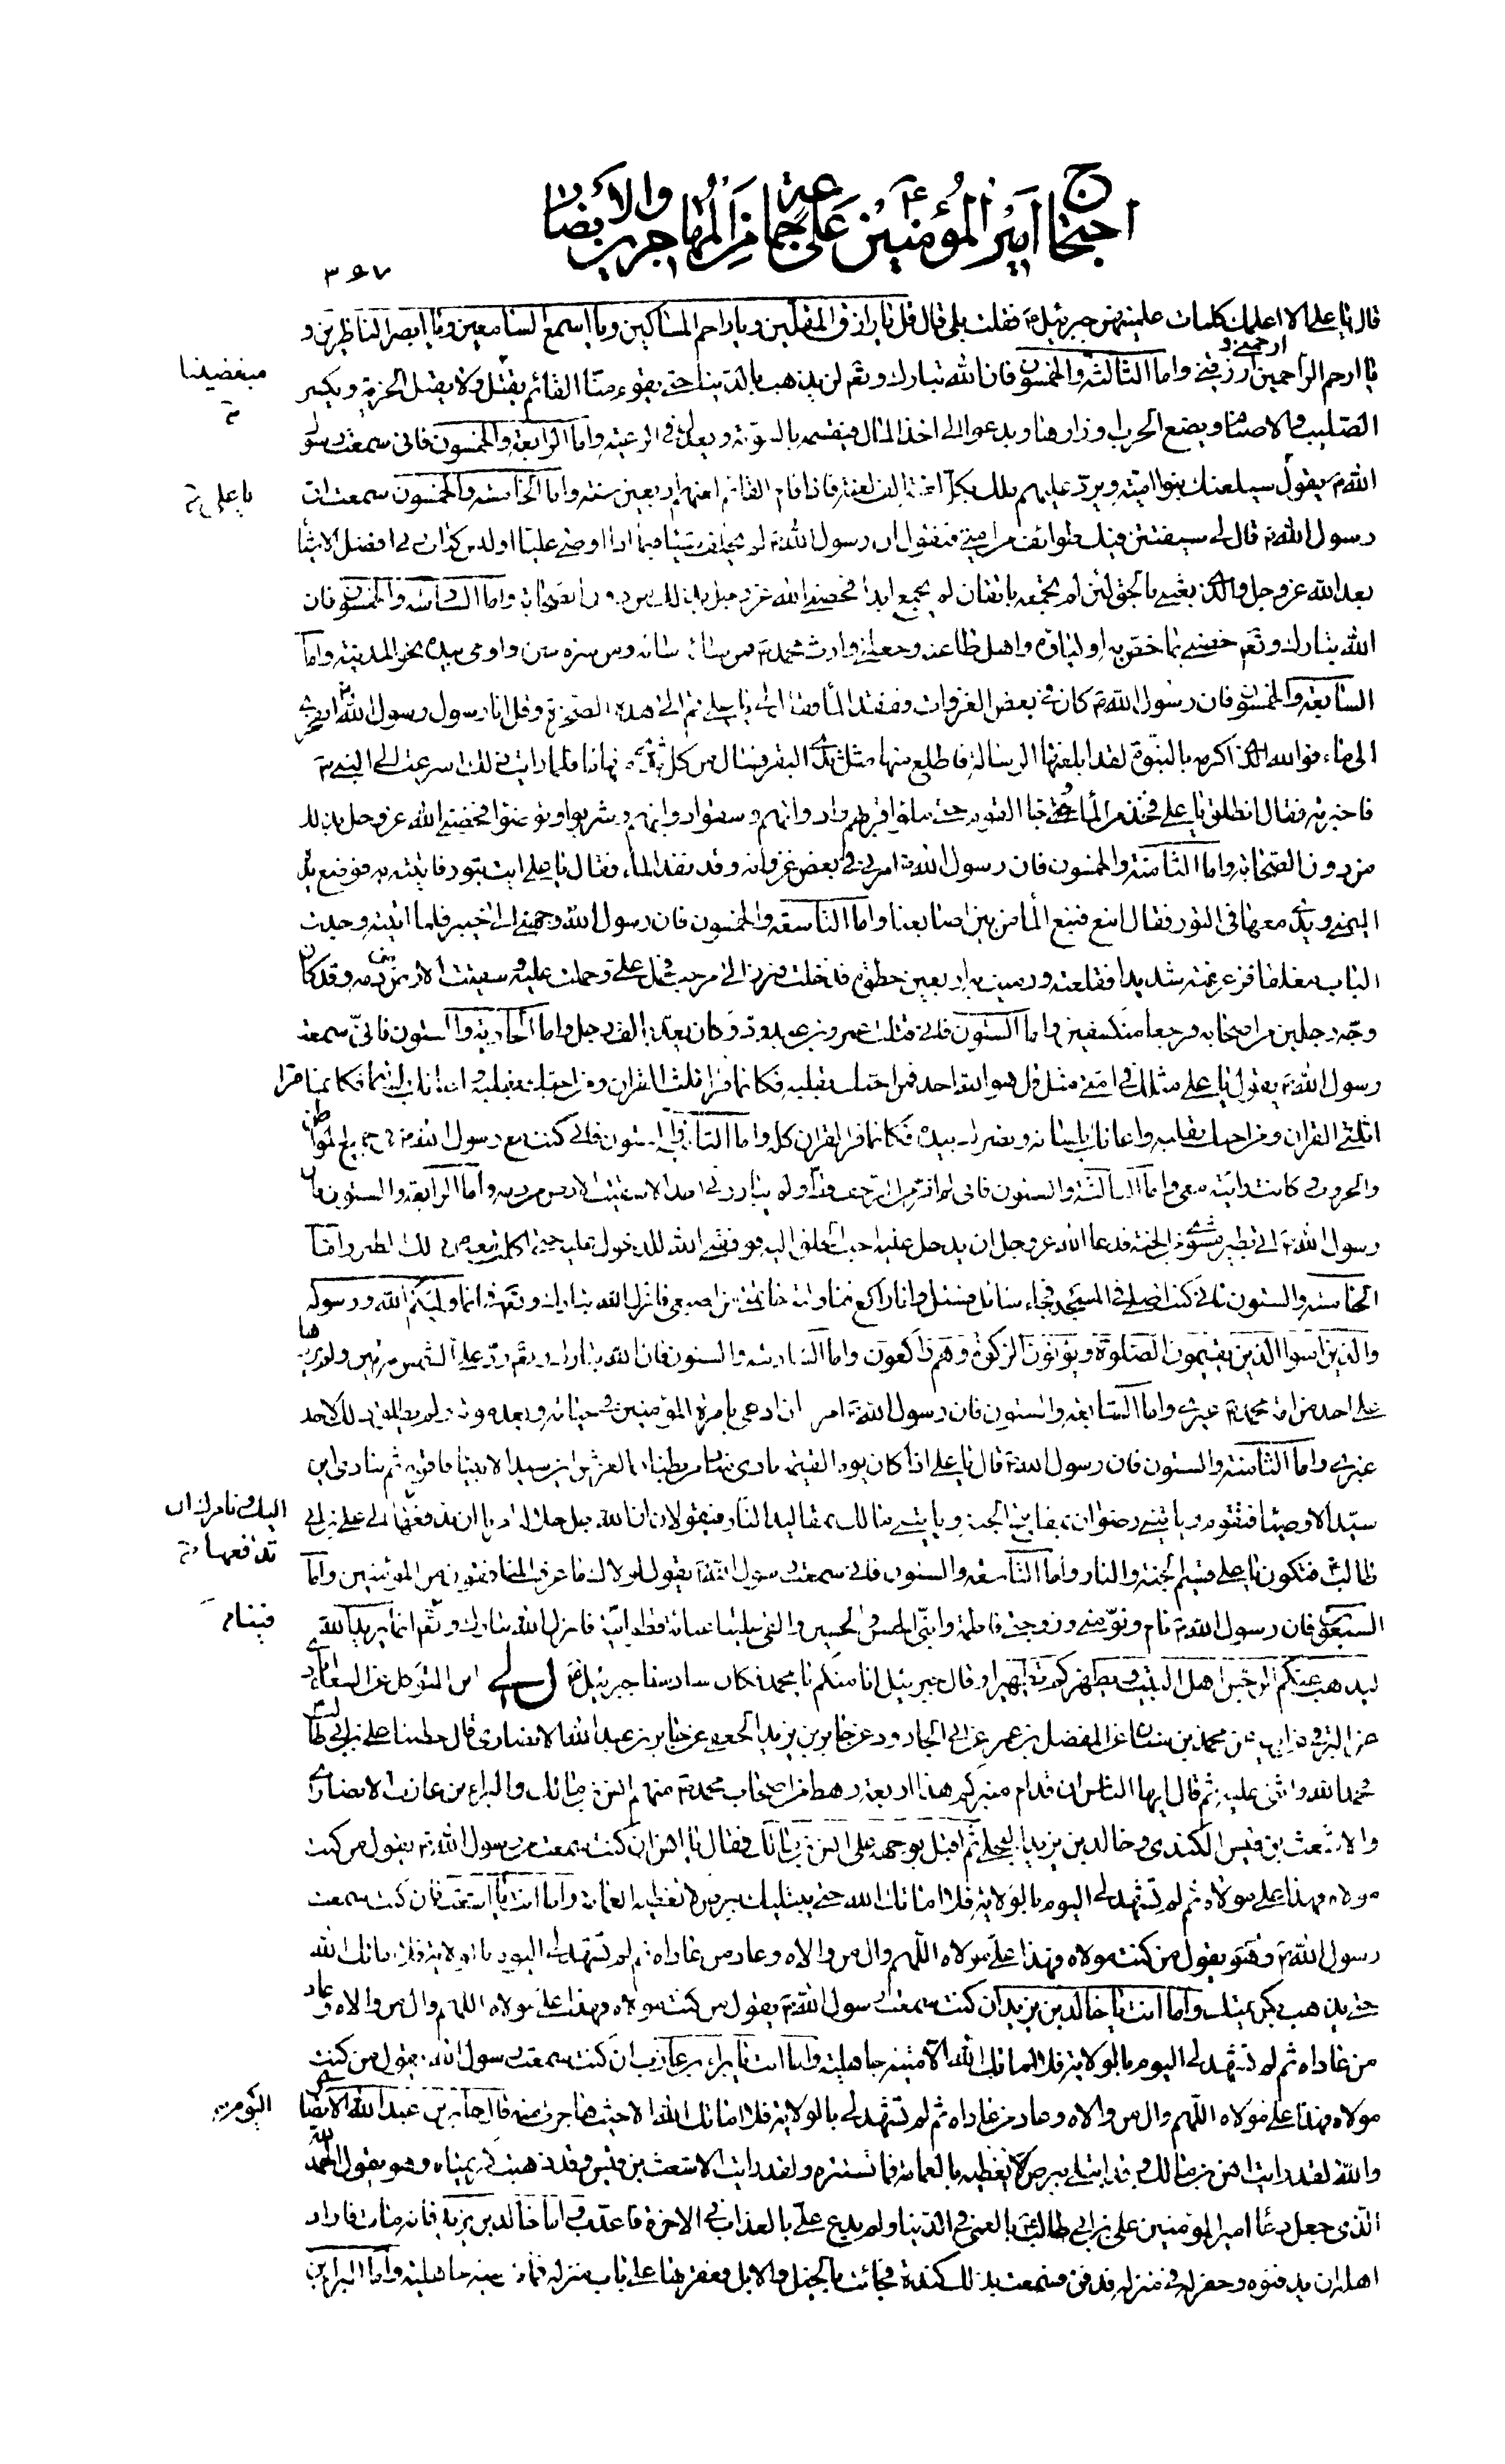 احتجاج امير المؤمنين ع على جماعة من المهاجرين والانصار
٣٦٧
قال يا على الا اعلمك كلمات علمنيهن جبرئيل فقلت بلى قال قل يا رازق المقلين ويا راحم المساكين ويا اسمع السامعين ويا ابصر الناظرين و
يا ارحم الراحمين ارحمنى و ارزقنى واما الثالثة والخمسون فان الله تبارك وتعم لن يذهب بالدنيا حتى يقوم منا القائم يقتل مبغضينا ولا يقبل الجزية ويكسر
الصليب والاصنام ويضع الحرب اوزارها ويدعو الى اخذ المال فيقسمه بالسوية ويعدل فى الرعية واما الرابعة والخمسون فانى سمعت رسول
الله ص يقول يا على سيلعنك بنو امية ويرد عليهم ملك بكل لعنة الف لعنة فاذا قام القائم لعنهم اربعين سنة واما الخامسة والخمسون سمعت ان
رسول الله ص قال لى سيفتتن فيك طوائف من امتى فتقول ان رسول الله ص لم يخلف شيئا فبماذا اوصى عليا اوليس كتاب ربى افضل الاشياء
بعد الله عز وجل والذى بعثنى بالحق لئن لم تجمعه باتقان لم يجمع ابدا فخصنى الله عز وجل بذلك من دون الصحابة واما السادسة والخمسون فان
الله تبارك وتعم خصنى بما خص به اولياءه واهل طاعته وجعلنى وارث محمد ص فمن ساءه ساءه ومن سره سره واومى بيده نحو المدينة واما
السابعة والخمسون فان رسول الله ص كان فى بعض الغزوات ففقد الماء فقال لى يا على قم الى هذه الصخرة وقل انا رسول رسول الله انفجرى
لى ماء فوالله الذى اكرمه بالنبوة لقد ابلغتها الرسالة فاطلع منها مثل ثدى البقر فسال من كل ثدى منها ماء فلما رايت ذلك اسرعت الى النبى ص
فاخبرته فقال انطلق يا على فخذ من الماء وجاء القوم حتى ملؤا قربهم وادواتهم وسقوا دوابهم وشربوا وتوضؤا فخصنى الله عز وجل بذلك
من دون الصحابة واما الثامنة والخمسون فان رسول الله ص امرنى فى بعض غزواته وقد نفد الماء فقال يا على ايت بتور فاتيته به فوضع يده
اليمنى ويدى معها فى التور فقال انبع فنبع الماء من بين اصابعنا واما التاسعة والخمسون فان رسول الله وجهنى الى خيبر فلما اتيته وجدت
الباب مغلقا فزعزعته شديدا فقلعته ورميت به اربعين خطوة فدخلت فبرز الى مرحب فحمل على وحملت عليه وسقيت الارض من دمه وقد كان
وجه رجلين من اصحابه فرجعا منكسفين واما الستون فانى قتلت عمرو بن عبد ود وكان يعد بالف رجل واما الحادية والستون فانى سمعت
رسول الله ص يقول يا على مثلك فى امتى مثل قل هو الله احد فمن احبك بقلبه فكانما قرا ثلث القران ومن احبك بقلبه واعانك بلسانه فكانما قرا
ثلثى القران ومن احبك بقلبه واعانك بلسانه ونصرك بيده فكانما قرا القران كله واما الثانية والستون فانى كنت مع رسول الله ص فى جميع المواطن
والحروب وكانت رايته معى واما الثالثة والستون فانى لم افر من الزحف قط ولم يبارزنى احد الا سقيت الارض من دمه واما الرابعة والستون فان
رسول الله ص اتى بطير مشوى من الجنة فدعا الله عز وجل ان يدخل عليه احب الخلق اليه فوفقنى الله للدخول عليه حتى اكلت معه من ذلك الطير واما
الخامسة والستون فانى كنت اصلى فى المسجد فجاء سائل فسئل وانا راكع فناولته خاتمى من اصبعى فانزل الله تبارك وتعم فى انما وليكم الله ورسوله
والذين امنوا الذين يقيمون الصلوة ويؤتون الزكوة وهم راكعون واما السادسة والستون فان الله تبارك وتعم رد على الشمس مرتين ولم يردها
على احد من امة محمد ص غيرى واما السابعة والستون فان رسول الله ص امر ان ادعى بامرة المؤمنين فى حياته وبعد موته ولم يطلق ذلك لاحد
غيرى واما الثامنة والستون فان رسول الله ص قال يا على اذا كان يوم القيمة نادى مناد من بطنان العرش اين سيد الانبياء فاقوم ثم ينادى اين
سيد الاوصياء فتقوم وياتينى رضوان بمفاتيح الجنة وياتينى مالك بمقاليد النار فيقولان ان الله جل جلاله امرنا ان ندفعها اليك ونامرك ان تدفعها الى على بن ابى
طالب فتكون يا على قسيم الجنة والنار واما التاسعة والستون فانى سمعت رسول الله ص يقول لولاك ما عرف المنافقون من المؤمنين واما
السبعون فان رسول الله ص نام ونومنى وزوجتى فاطمة وابنى الحسن والحسين والقى علينا عباءة قطوانية فانزل الله تبارك وتعم فينا انما يريد الله
ليذهب عنكم الرجس اهل البيت ويطهركم تطهيرا وقال جبرئيل انا منكم يا محمد فكان سادسنا جبرئيل ع ل لى ابن المتوكل عن السعدابادى
عن البرقى عن ابيه عن محمد بن سنان عن المفضل بن عمر عن ابى الجارود عن جابر بن يزيد الجعفى عن جابر بن عبد الله الانصارى قال خطبنا على بن ابى طالب
فحمد الله واثنى عليه ثم قال ايها الناس ان قدام منبركم هذا اربعة رهط من اصحاب محمد ص منهم انس بن مالك والبراء بن عازب الانصارى
والاشعث بن قيس الكندى وخالد بن يزيد البجلى ثم اقبل بوجهه على انس بن مالك فقال يا انس ان كنت سمعت من رسول الله ص يقول من كنت
مولاه فهذا على مولاه ثم لم تشهد لى اليوم بالولاية فلا اماتك الله حتى يبتليك ببرص لا تغطيه العمامة واما انت يا اشعث فان كنت سمعت
رسول الله ص وهو يقول من كنت مولاه فهذا على مولاه اللهم وال من والاه وعاد من عاداه ثم لم تشهد لى اليوم بالولاية فلا اماتك الله
حتى يذهب بكريمتيك واما انت يا خالد بن يزيد ان كنت سمعت رسول الله ص يقول من كنت مولاه فهذا على مولاه اللهم وال من والاه وعاد
من عاداه ثم لم تشهد لى اليوم بالولاية فلا اماتك الله الا ميتة جاهلية واما انت يا براء بن عازب ان كنت سمعت رسول الله يقول من كنت
مولاه فهذا على مولاه اللهم وال من والاه وعاد من عاداه ثم لم تشهد لى اليوم بالولاية فلا اماتك الله الا حيث هاجرت منه قال جابر بن عبد الله الانصارى
والله لقد رايت انس بن مالك وقد ابتلى ببرص لا يغطيه بالعمامة فما تستره ولقد رايت الاشعث بن قيس وقد ذهبت كريمتاه وهو يقول الحمد لله
الذى جعل دعاء امير المؤمنين على بن ابى طالب ع بالعمى فى الدنيا ولم يدع على بالعذاب فى الاخرة فاعذب واما خالد بن يزيد فانه مات فاراد
اهله ان يدفنوه وحفر له فى منزله فدفن فسمعت بذلك كندة فجائت بالخيل والابل فعقرتها على باب منزله فمات ميتة جاهلية واما البراء بن